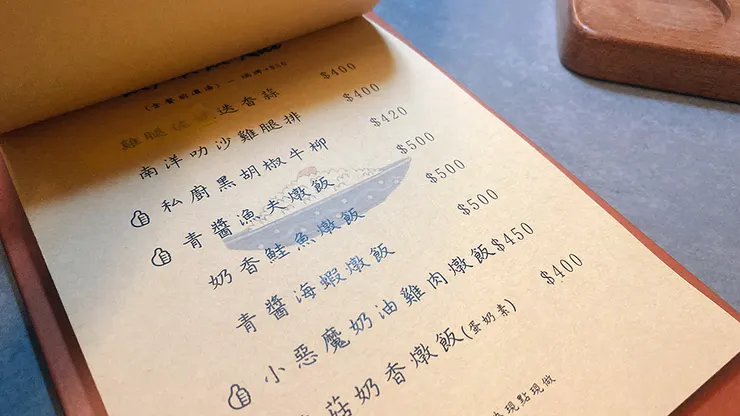 迭香蒜 $400
南洋叻沙雞腿排 $400
私廚黑胡椒牛柳 $420
青醬漁夫燉飯 $500
奶香鮭魚燉飯 $500
青醬海蝦燉飯 $500
小惡魔奶油雞肉燉飯 $450
菇奶香燉飯(蛋奶素) $400
現點現做